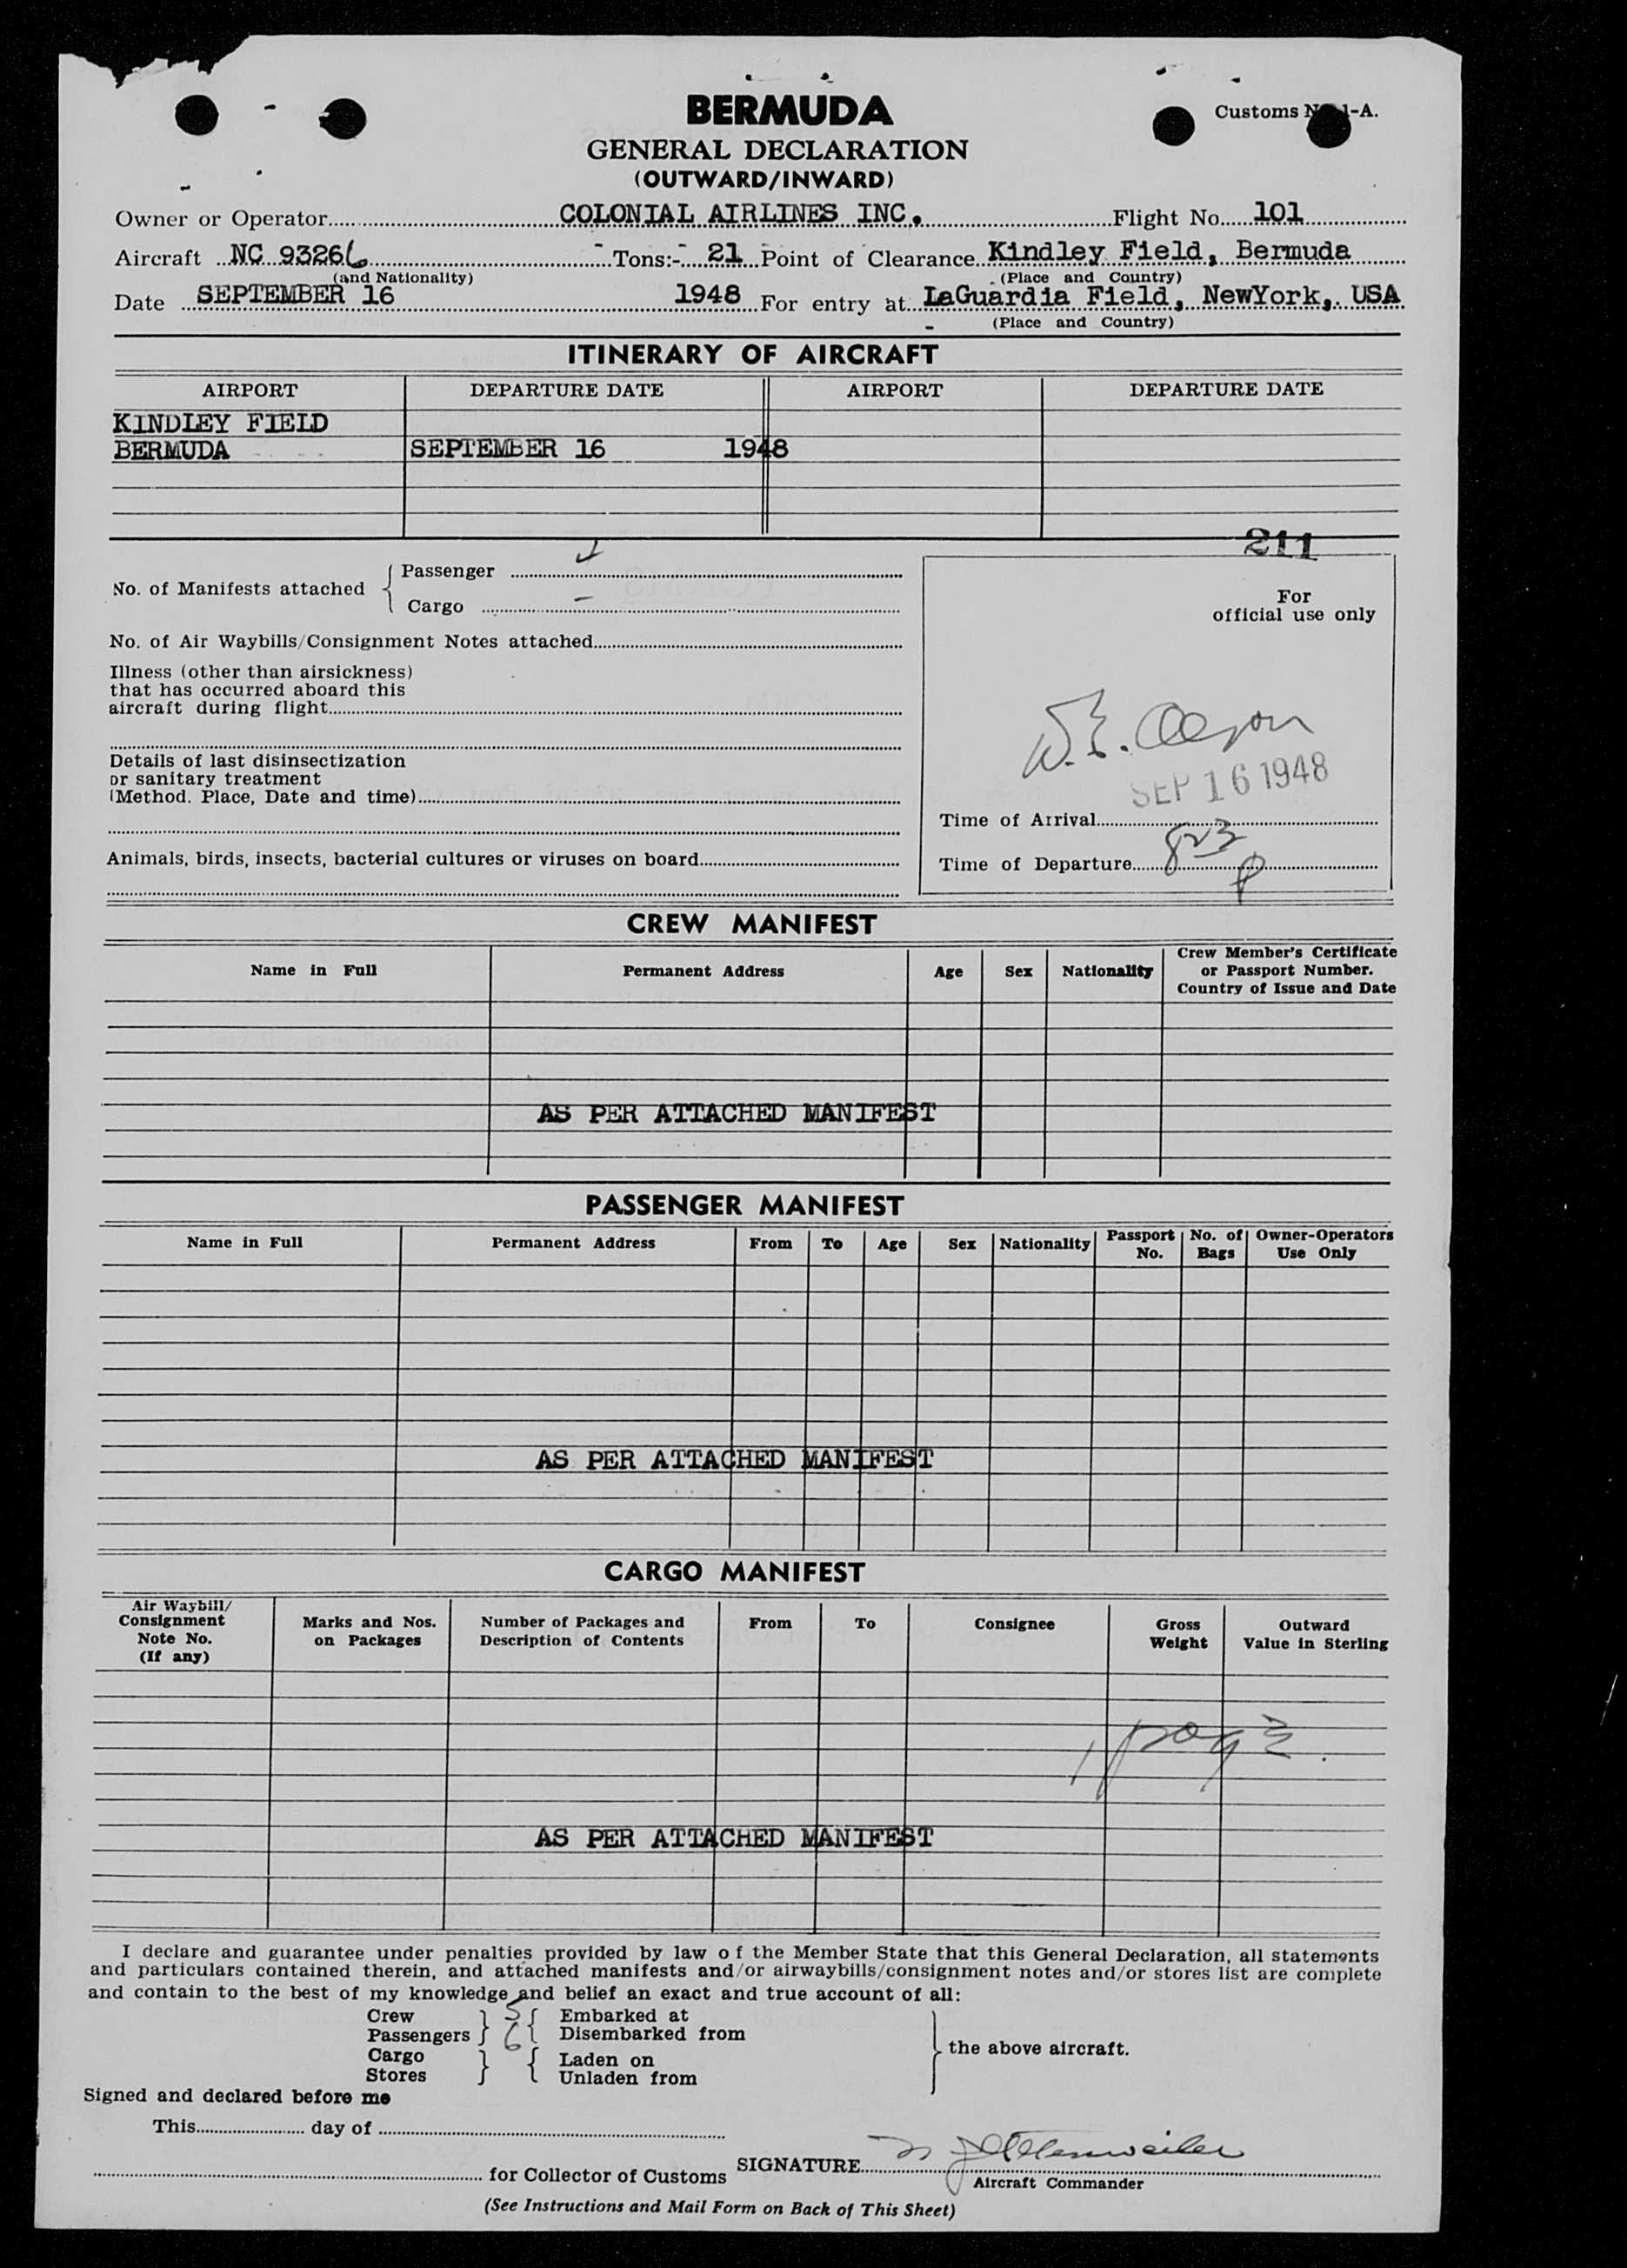 BERMUDA
Customs N 1-A.
GENERAL DECLARATION
(OUTWARD/INWARD)
Owner or Operator COLONIAL AIRLINES INC. Flight No. 101
Aircraft NC 93266 Tons:- 21 Point of Clearance Kindley Field, Bermuda
(and Nationality) (Place and Country)
Date SEPTEMBER 16 1948 For entry at LaGuardia Field, NewYork, USA
(Place and Country)
ITINERARY OF AIRCRAFT
AIRPORT DEPARTURE DATE AIRPORT DEPARTURE DATE
KINDLEY FIELD
BERMUDA SEPTEMBER 16 1948
211
No. of Manifests attached { Passenger
Cargo -
For
official use only
No. of Air Waybills/Consignment Notes attached
Illness (other than airsickness)
that has occurred aboard this
aircraft during flight
Details of last disinsectization
or sanitary treatment
(Method. Place, Date and time)
W.E.
SEP 16 1948
Time of Arrival
Animals, birds, insects, bacterial cultures or viruses on board
Time of Departure 823 p
CREW MANIFEST
Name in Full Permanent Address Age Sex Nationality Crew Member's Certificate
or Passport Number.
Country of Issue and Date
AS PER ATTACHED MANIFEST
PASSENGER MANIFEST
Name in Full Permanent Address From To Age Sex Nationality Passport No. No. of Bags Owner-Operators Use Only
AS PER ATTACHED MANIFEST
CARGO MANIFEST
Air Waybill/
Consignment
Note No.
(If any)
Marks and Nos.
on Packages
Number of Packages and
Description of Contents
From To Consignee
Gross
Weight
Outward
Value in Sterling
AS PER ATTACHED MANIFEST
I declare and guarantee under penalties provided by law of the Member State that this General Declaration, all statements
and particulars contained therein, and attached manifests and/or airwaybills/consignment notes and/or stores list are complete
and contain to the best of my knowledge and belief an exact and true account of all:
Crew } 5 { Embarked at
Passengers } 6 { Disembarked from
} the above aircraft.
Cargo } { Laden on
Stores } { Unladen from
Signed and declared before me
This day of
SIGNATURE
for Collector of Customs
Aircraft Commander
(See Instructions and Mail Form on Back of This Sheet)